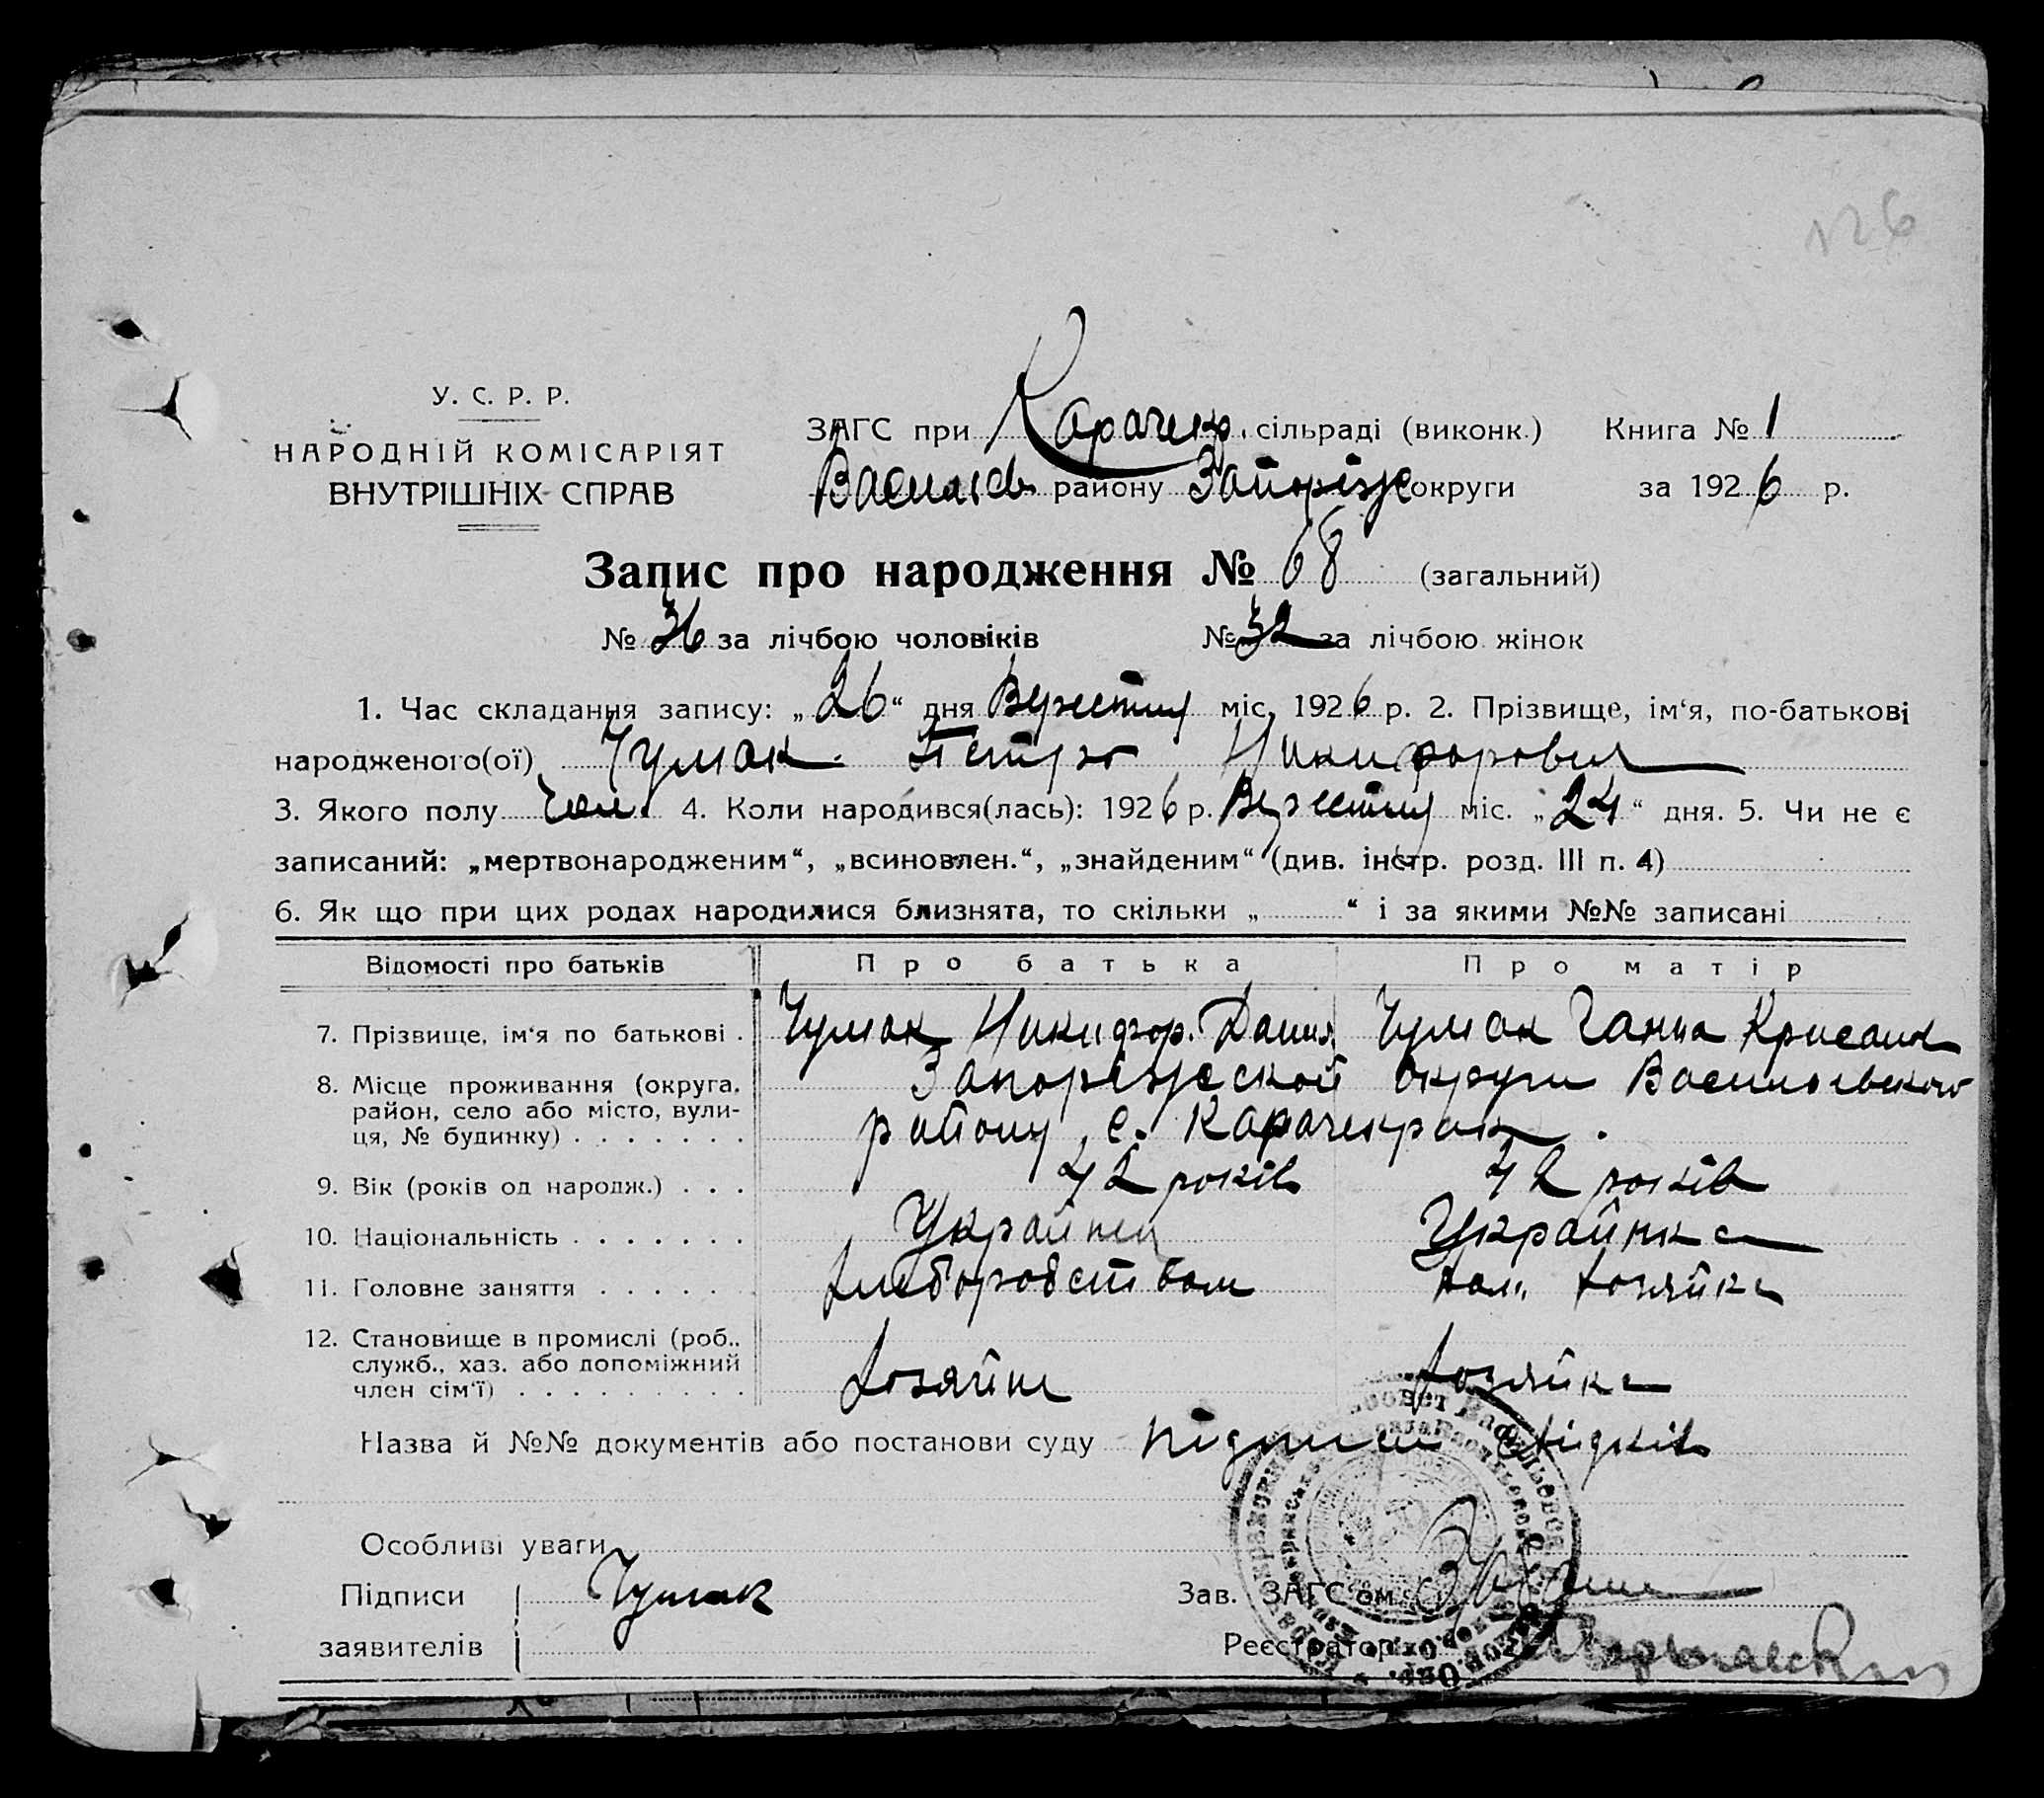 126
У. С. Р. Р.
НАРОДНІЙ КОМІСАРІЯТ
ВНУТРІШНІХ СПРАВ
ЗАГС при Карачекр. сільраді (виконк.) Книга № 1
Василів району Запоріж округи за 1926 р.
Запис про народження № 68 (загальний)
№ 36 за лічбою чоловіків № 32 за лічбою жінок
1. Час складання запису: „26“ дня Вересня міс. 1926 р. 2. Прізвище, ім‘я, по-батькові
народженого(ої) Чумак Петро Никифорович
3. Якого полу чол. 4. Коли народився(лась): 1926 р. Вересня міс. „24“ дня. 5. Чи не є
записаний: „мертвонародженим“, „всиновлен.“, „знайденим“ (див. інстр. розд. III п. 4)
6. Як що при цих родах народилися близнята, то скільки „ “ і за якими №№ записані
Відомості про батьків Про батька Про матір
7. Прізвище, ім‘я по батькові . Чумак Никифор. Данил. Чумак Ганна Крисанф
8. Місце проживання (округа, Запоріжской округи Васильевского
район, село або місто, вули-
ця, № будинку) . . . . . . . району с. Карачекрак.
9. Вік (років од народж.) . . . 42 років 42 років
10. Національність . . . . . . . Украйнец Украйнка
11. Головне заняття . . . . . . хлеборобством дом. хозяйка
12. Становище в промислі (роб.,
служб., хаз. або допоміжний
член сім‘ї) . . . . . . . . . . хозяин хозяйка
Назва й №№ документів або постанови суду підписи свідків
Особливі уваги
Підписи Чумак Зав. ЗАГС‘ом
заявителів Реєстратор